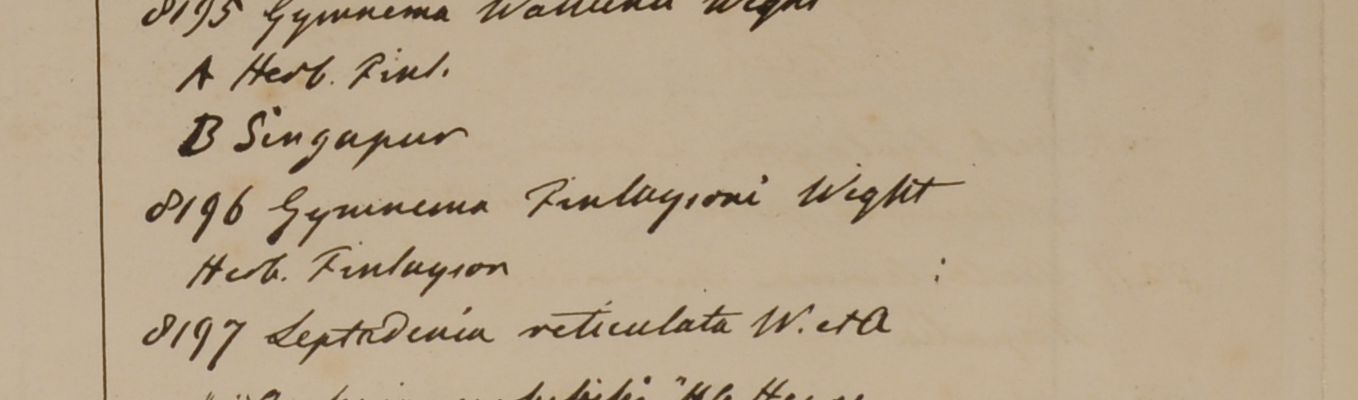 8195 Gymnema Wallichii Wight
A Herb. Finl.
B Singapur
8196 Gymnema Finlaysoni Wight
Herb. Finlayson
8197 Leptadenia reticulata W. et A